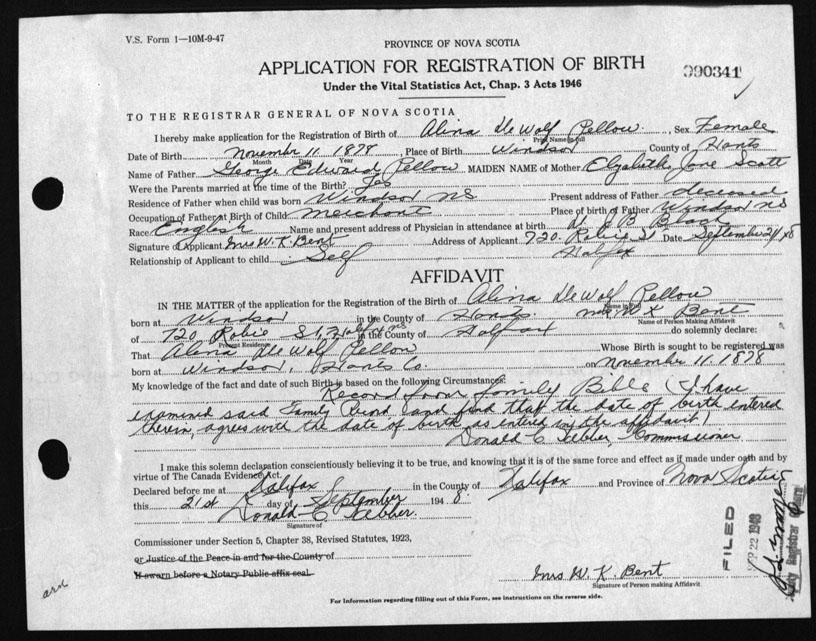 V.S. Form 1—10M-9-47
PROVINCE OF NOVA SCOTIA
APPLICATION FOR REGISTRATION OF BIRTH
Under the Vital Statistics Act, Chap. 3 Acts 1946
090341
TO THE REGISTRAR GENERAL OF NOVA SCOTIA
I hereby make application for the Registration of Birth of Alina DeWolf Pellow. Sex Female
Print Name in full
Date of Birth November 11. 1878 Place of Birth Windsor County of Hants
Month Day Year
Name of Father George Edward Pellow MAIDEN NAME of Mother Elizabeth Jane Scott
Were the Parents married at the time of the Birth? Yes
Residence of Father when child was born Windsor NS Present address of Father deceased
Occupation of Father at Birth of Child Merchant Place of birth of Father Windsor NS
Race English Name and present address of Physician in attendance at birth J B Black
Signature of Applicant Mrs W. K. Bent Address of Applicant 720 Robie St Date September 21/48
Relationship of Applicant to child Self Halifax
AFFIDAVIT
IN THE MATTER of the application for the Registration of the Birth of Alina DeWolf Pellow
Name in Full
born at Windsor in the County of Hants Mrs W K Bent
Name of Person Making Affidavit
of 720 Robie St, Halifax NS in the County of Halifax do solemnly declare:
Present Residence
That Alina DeWolf Pellow Whose Birth is sought to be registered was
born at Windsor, Hants Co. on November 11. 1878
My knowledge of the fact and date of such Birth is based on the following Circumstances:
Record from family Bible (I have
examined said Family Record and find that the date of birth entered
therein, agrees with the date of birth as entered in the affidavit)
Donald C Commissioner
I make this solemn declaration conscientiously believing it to be true, and knowing that it is of the same force and effect as if made under oath and by
virtue of The Canada Evidence Act.
Declared before me at Halifax in the County of Halifax and Province of Nova Scotia
this 21st day of September 1948.
Donald C
Signature of
Commissioner under Section 5, Chapter 38, Revised Statutes, 1923,
or Justice of the Peace in and for the County of
If sworn before a Notary Public affix seal.
FILED
SEP 22 1948
Deputy Registrar General
Mrs W K Bent
Signature of Person making Affidavit
For Information regarding filling out of this Form, see instructions on the reverse side.